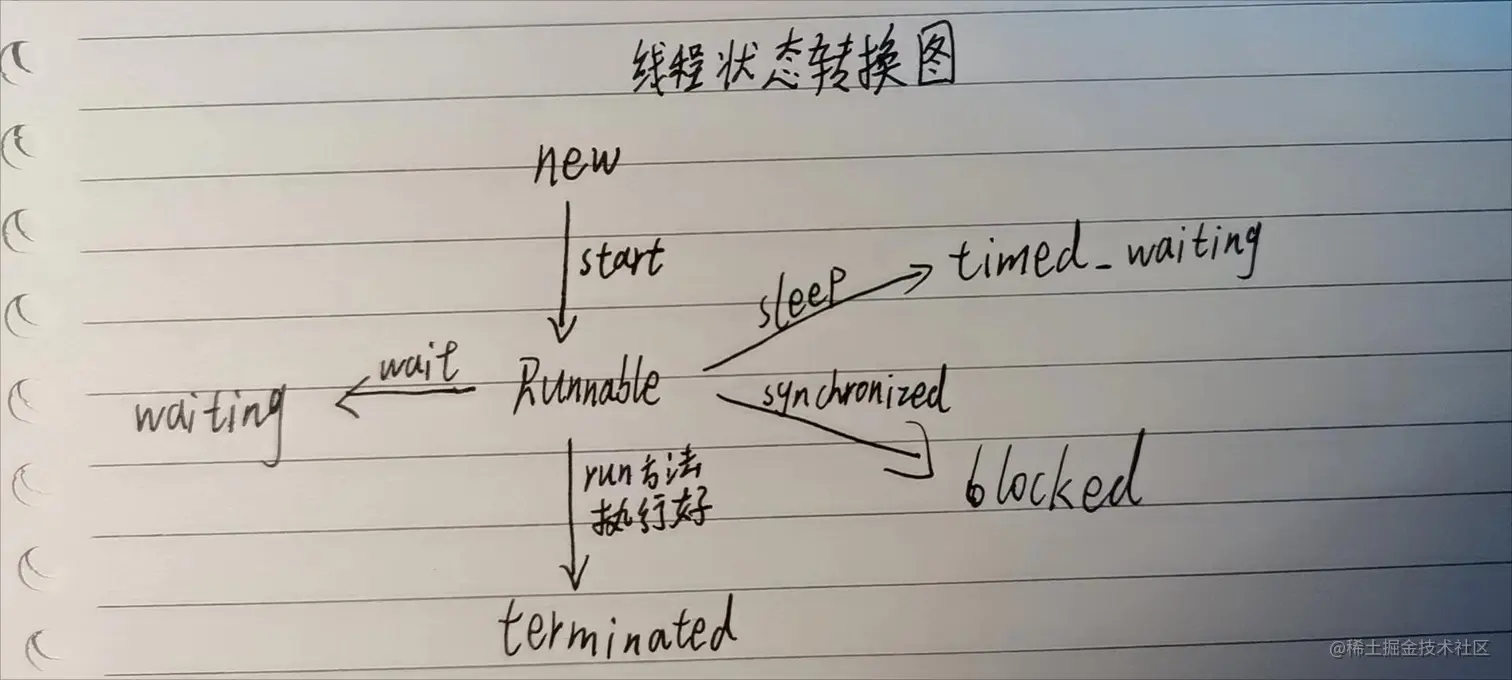 线程状态转换图
new
start
sleep
timed_waiting
wait
Runnable
synchronized
waiting
blocked
run方法
执行好
terminated
@稀土掘金技术社区